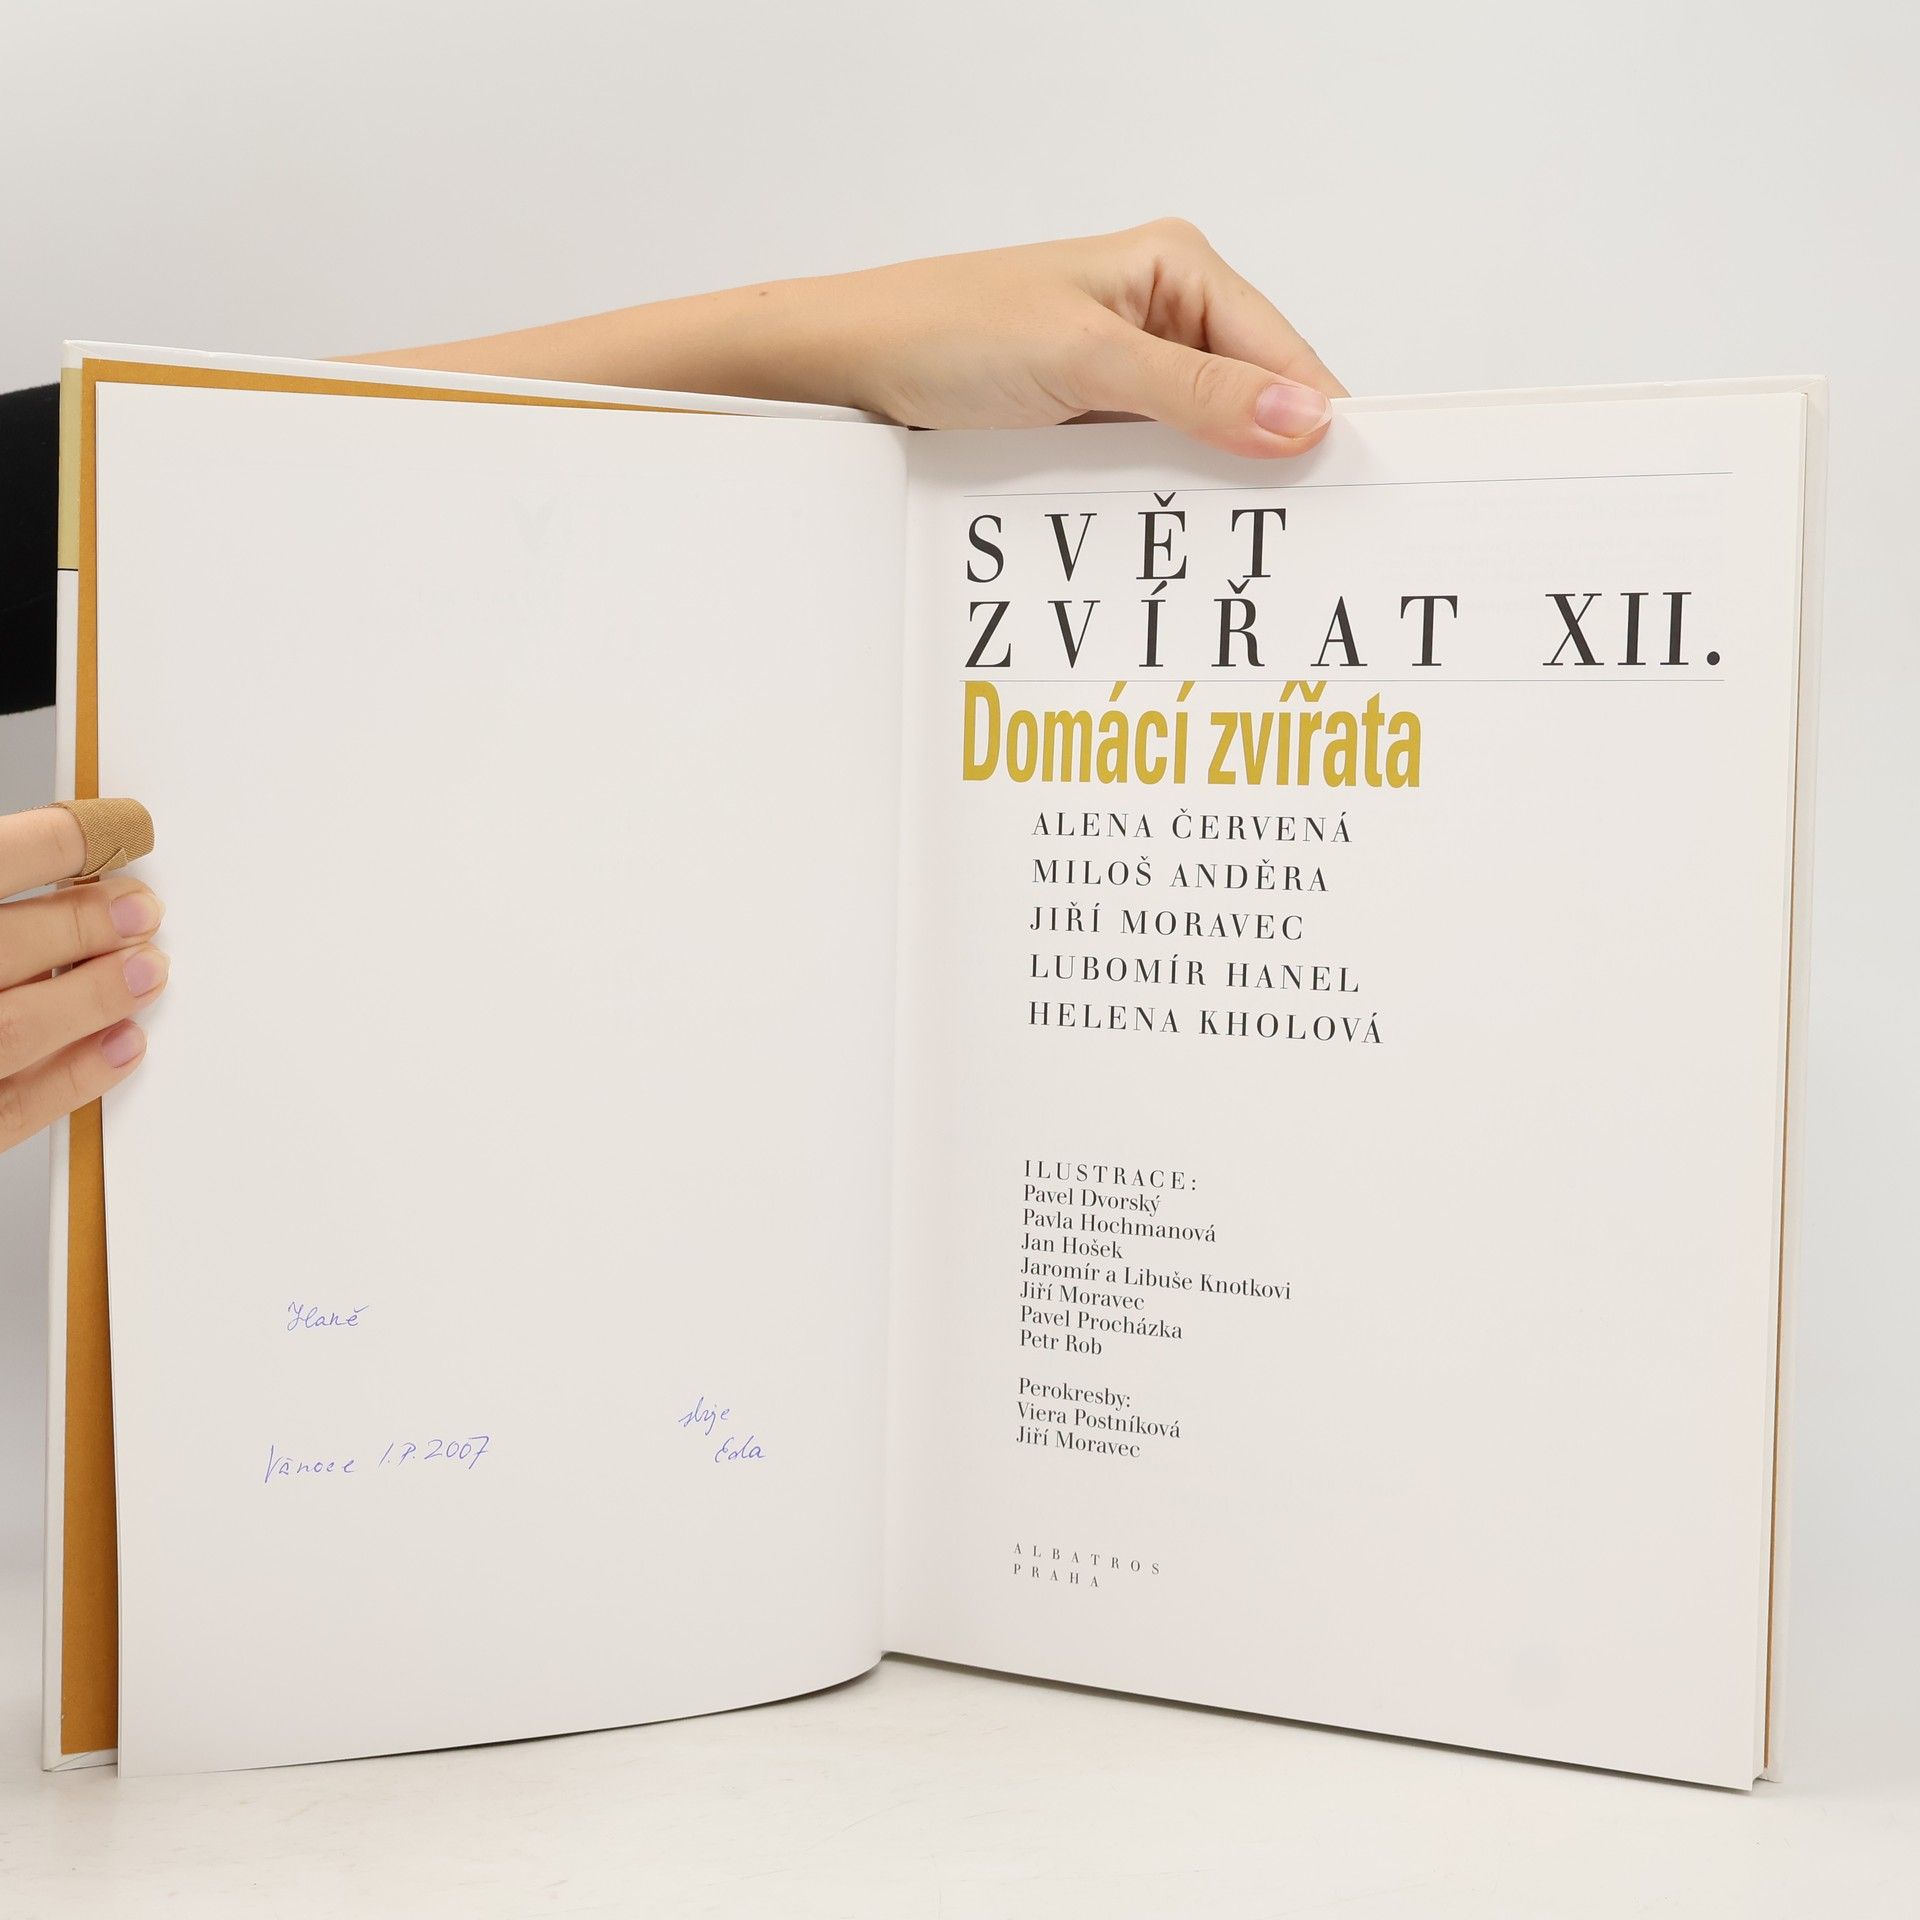 Haně
Vánoce 1.P.2007
strje
Eda
SVĚT
ZVÍŘAT XII.
Domácí zvířata
ALENA ČERVENÁ
MILOŠ ANDĚRA
JIŘÍ MORAVEC
LUBOMÍR HANEL
HELENA KHOLOVÁ
ILUSTRACE:
Pavel Dvorský
Pavla Hochmanová
Jan Hošek
Jaromír a Libuše Knotkovi
Jiří Moravec
Pavel Procházka
Petr Rob
Perokresby:
Viera Postníková
Jiří Moravec
ALBATROS
PRAHA